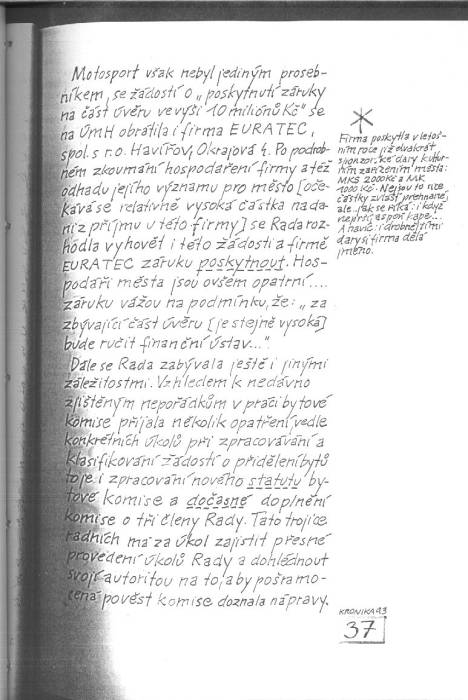 Motosport však nebyl jediným proseb-
níkem, se žádostí o „poskytnutí záruky
na část úvěru ve výši 10 miliónů Kč" se
na ÚmH obrátila i firma EURATEC,
spol. s r.o. Havířov, Okrajová 4. Po podrob-
ném zkoumání hospodaření firmy a též
odhadu jejího významu pro město [oče-
kává se relativně vysoká částka na da-
ni z příjmu u této firmy] se Rada roz-
hodla vyhovět i této žádosti a firmě
EURATEC záruku poskytnout. Hos-
podáři města jsou ovšem opatrní....
záruku vážou na podmínku, že: „za
zbývající část úvěru [je stejně vysoká]
bude ručit finanční ústav...".
Dále se Rada zabývala ještě i jinými
záležitostmi. Vzhledem k nedávno
zjištěným nepořádkům v práci bytové
komise přijala několik opatření vedle
konkrétních úkolů při zpracovávání a
klasifikování žádostí o přidělení bytů
to je i zpracování nového statutu by-
tové komise a dočasné doplnění
komise o tři členy Rady. Tato trojice
radních má za úkol zajistit přesné
provedení úkolů Rady a dohlédnout
svojí autoritou na to, aby pošramo-
cená pověst komise doznala nápravy.
*
Firma poskytla v letoš-
ním roce již dvakrát
sponzorské dary kultur-
ním zařízením města:
MKS 2000 Kč a MK
1000 Kč. Nejsou to sice
částky zvlášť přehnané,
ale jak se říká: i když
neprší, aspoň kape...
A navíc: i drobnějšími
dary si firma dělá
jméno.
KRONIKA 93
37